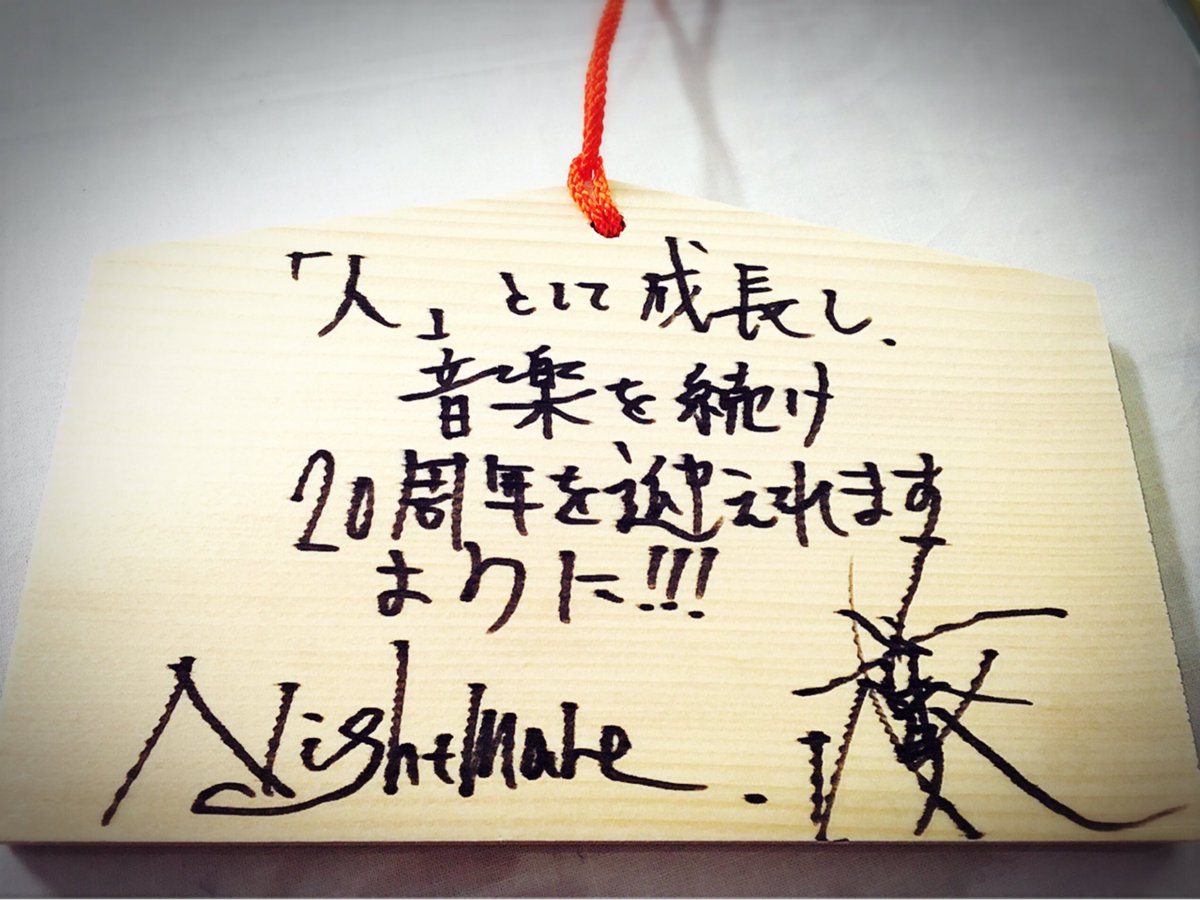 「人」として成長し、
音楽を続け
20周年を迎えれます
ように!!!
Nightmare.